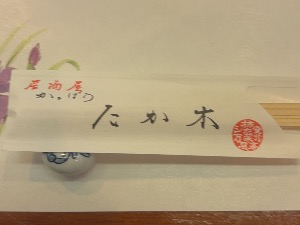 居酒屋
かっぽう
たか木